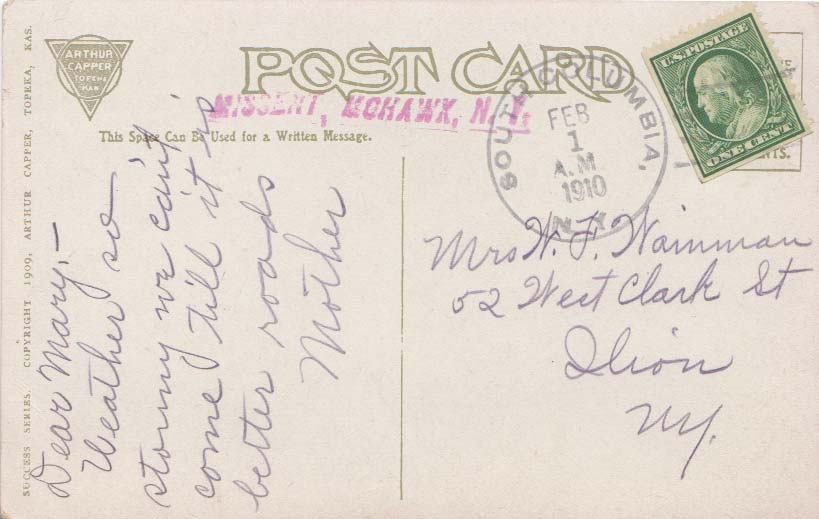 SUCCESS SERIES. COPYRIGHT 1909, ARTHUR CAPPER, TOPEKA, KAS.
ARTHUR
CAPPER
TOPEKA
KAN
POST CARD
MISSENT, MOHAWK, N. Y.
This Space Can Be Used for a Written Message.
Dear Mary,—
Weather so
stormy we can't
come till it is
better roads
Mother
SOUTH COLUMBIA,
FEB
1
A.M
1910
N.Y.
U.S. POSTAGE
ONE CENT
Mrs W. F. Wainman
52 West Clark St
Ilion
NY.